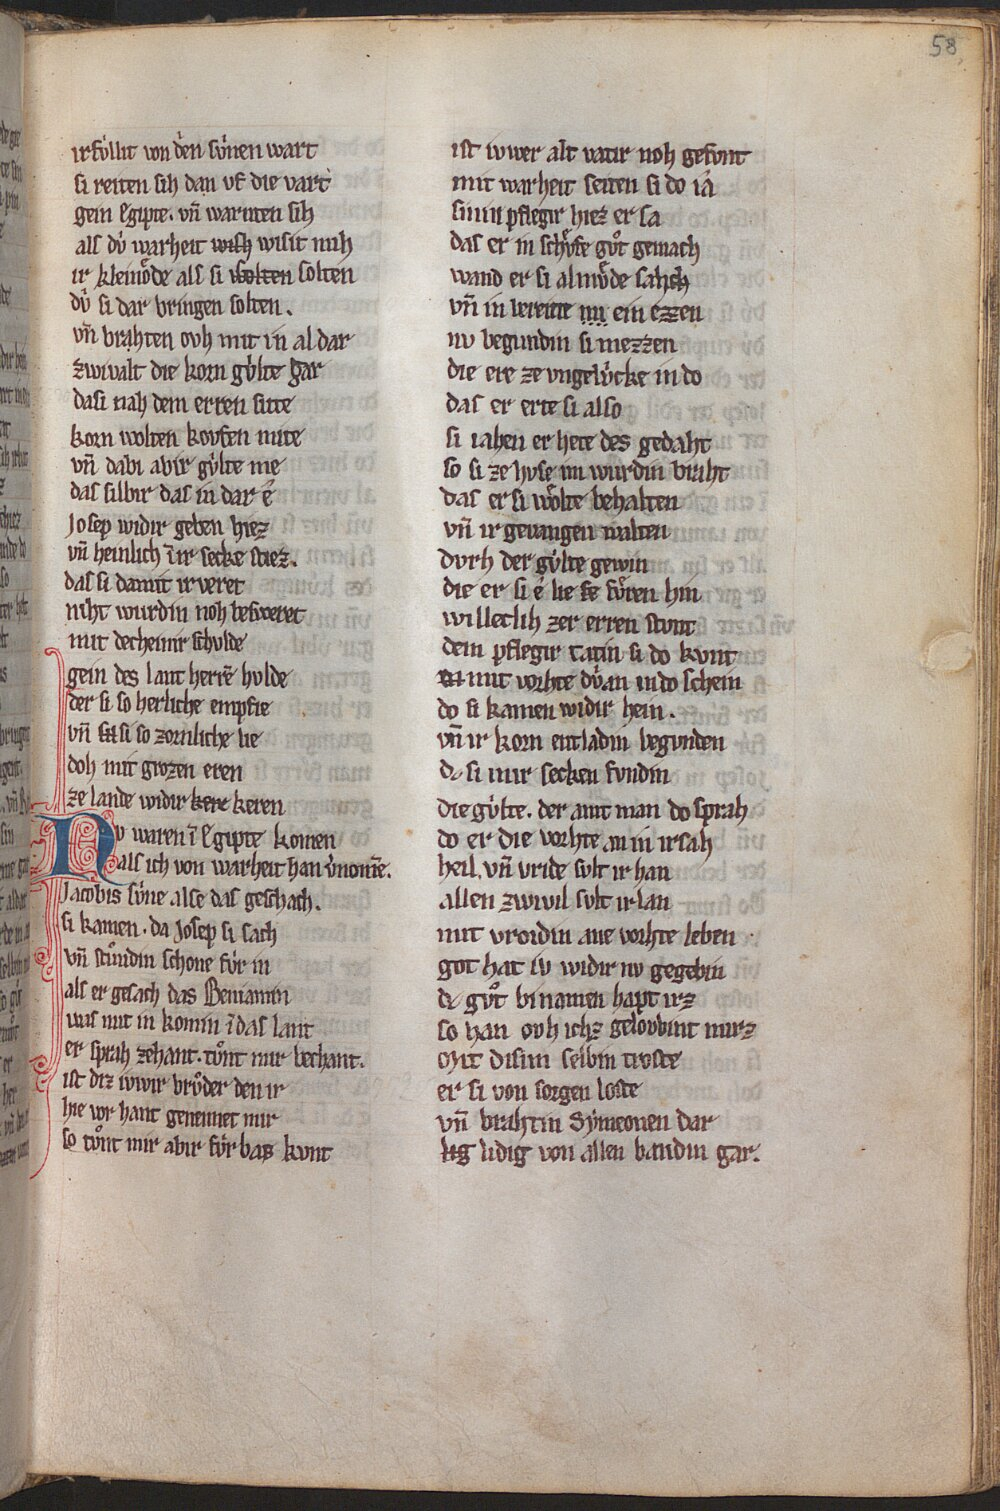 58
irfúllit von den súnen wart
si reiten sih dan vf die vart
gein Egipte. vn̄ warnten sih
als dú warheit wish wisit mih
ir kleinöde als si wolten solten
dú si dar bringen solten.
vn̄ brahten ovh mit in al dar
zwivalt die korn gúlte gar
dasi nah dem erren sitte
korn wolten kovfen mite
vn̄ dabi abir gúlte me
das silbir das in dar é
Josep widir geben hiez
vn̄ heinlich ī ir secke stiez.
das si damit irveret
niht wurdin noh besweret
mit decheinir schulde
gein des lant herrē hulde
der si so herliche empfie
vn̄ si so zornliche lie
doh mit grozen eren
ze lande widir kere keren
Nv waren ī Egipte komen
als ich von warheit han v̓nomē.
Jacobis súne alse das geschach.
si kamen. da Josep si sach
vn̄ stůndin schone fúr in
als er gesach das Beniamin
was mit in komin ī das lant
er sprah zehant. tůnt mir bechant.
ist diz iwir brůder den ir
hie vor hant genennet mir
so tůnt mir abir fúr bas kunt
ist iwer alt vatir noh gesunt
mit warheit seiten si do ia
sinin pflegir hiez er sa
das er in schůfe gůt gemach
wand er si almůde sahch
vn̄ in bereite im ein ezzen
nv begundin si mezzen
die ere ze vngelúcke in do
das er erte si also
si iahen er hete des gedaht
so si ze huse im wurdin braht
das er si wölte behalten
vn̄ ir gevangen walten
durh der gúlte gewin
die er si é lie fe füren hin
willeclih zer erren stunt
dem pflegir tatin si do kunt
mit vorhte dú an in do schein
do si kamen widir hein.
vn̄ ir korn entladin begunden
do si inir secken fundin
die gúlte. der amt man do sprah
do er die vorhte an in irsah
heil. vn̄ vride sult ir han
allen zwivil sult ir lan
mit vroidin ane vorhte leben
got hat iv widir nv gegebin
de gůt binamen hapt irz
so han ovh ichz gelovbint mirz
Mit disim selbin troste
er si von sorgen loste
vn̄ brahtin Symeonen dar
lidig von allen bandin gar.